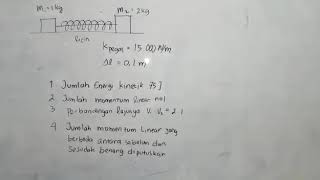 m₁=1kg
m₂=2kg
licin
Kpegas = 15.000 N/m
Δl = 0,1 m
1 Jumlah Energi kinetik 75 J
2 Jumlah momentum linear nol
3 Perbandingan lajunya V₁ V₂ = 2 : 1
4 Jumlah momentum linear yang
berbeda antara sebelum dan
sesudah benang diputuskan